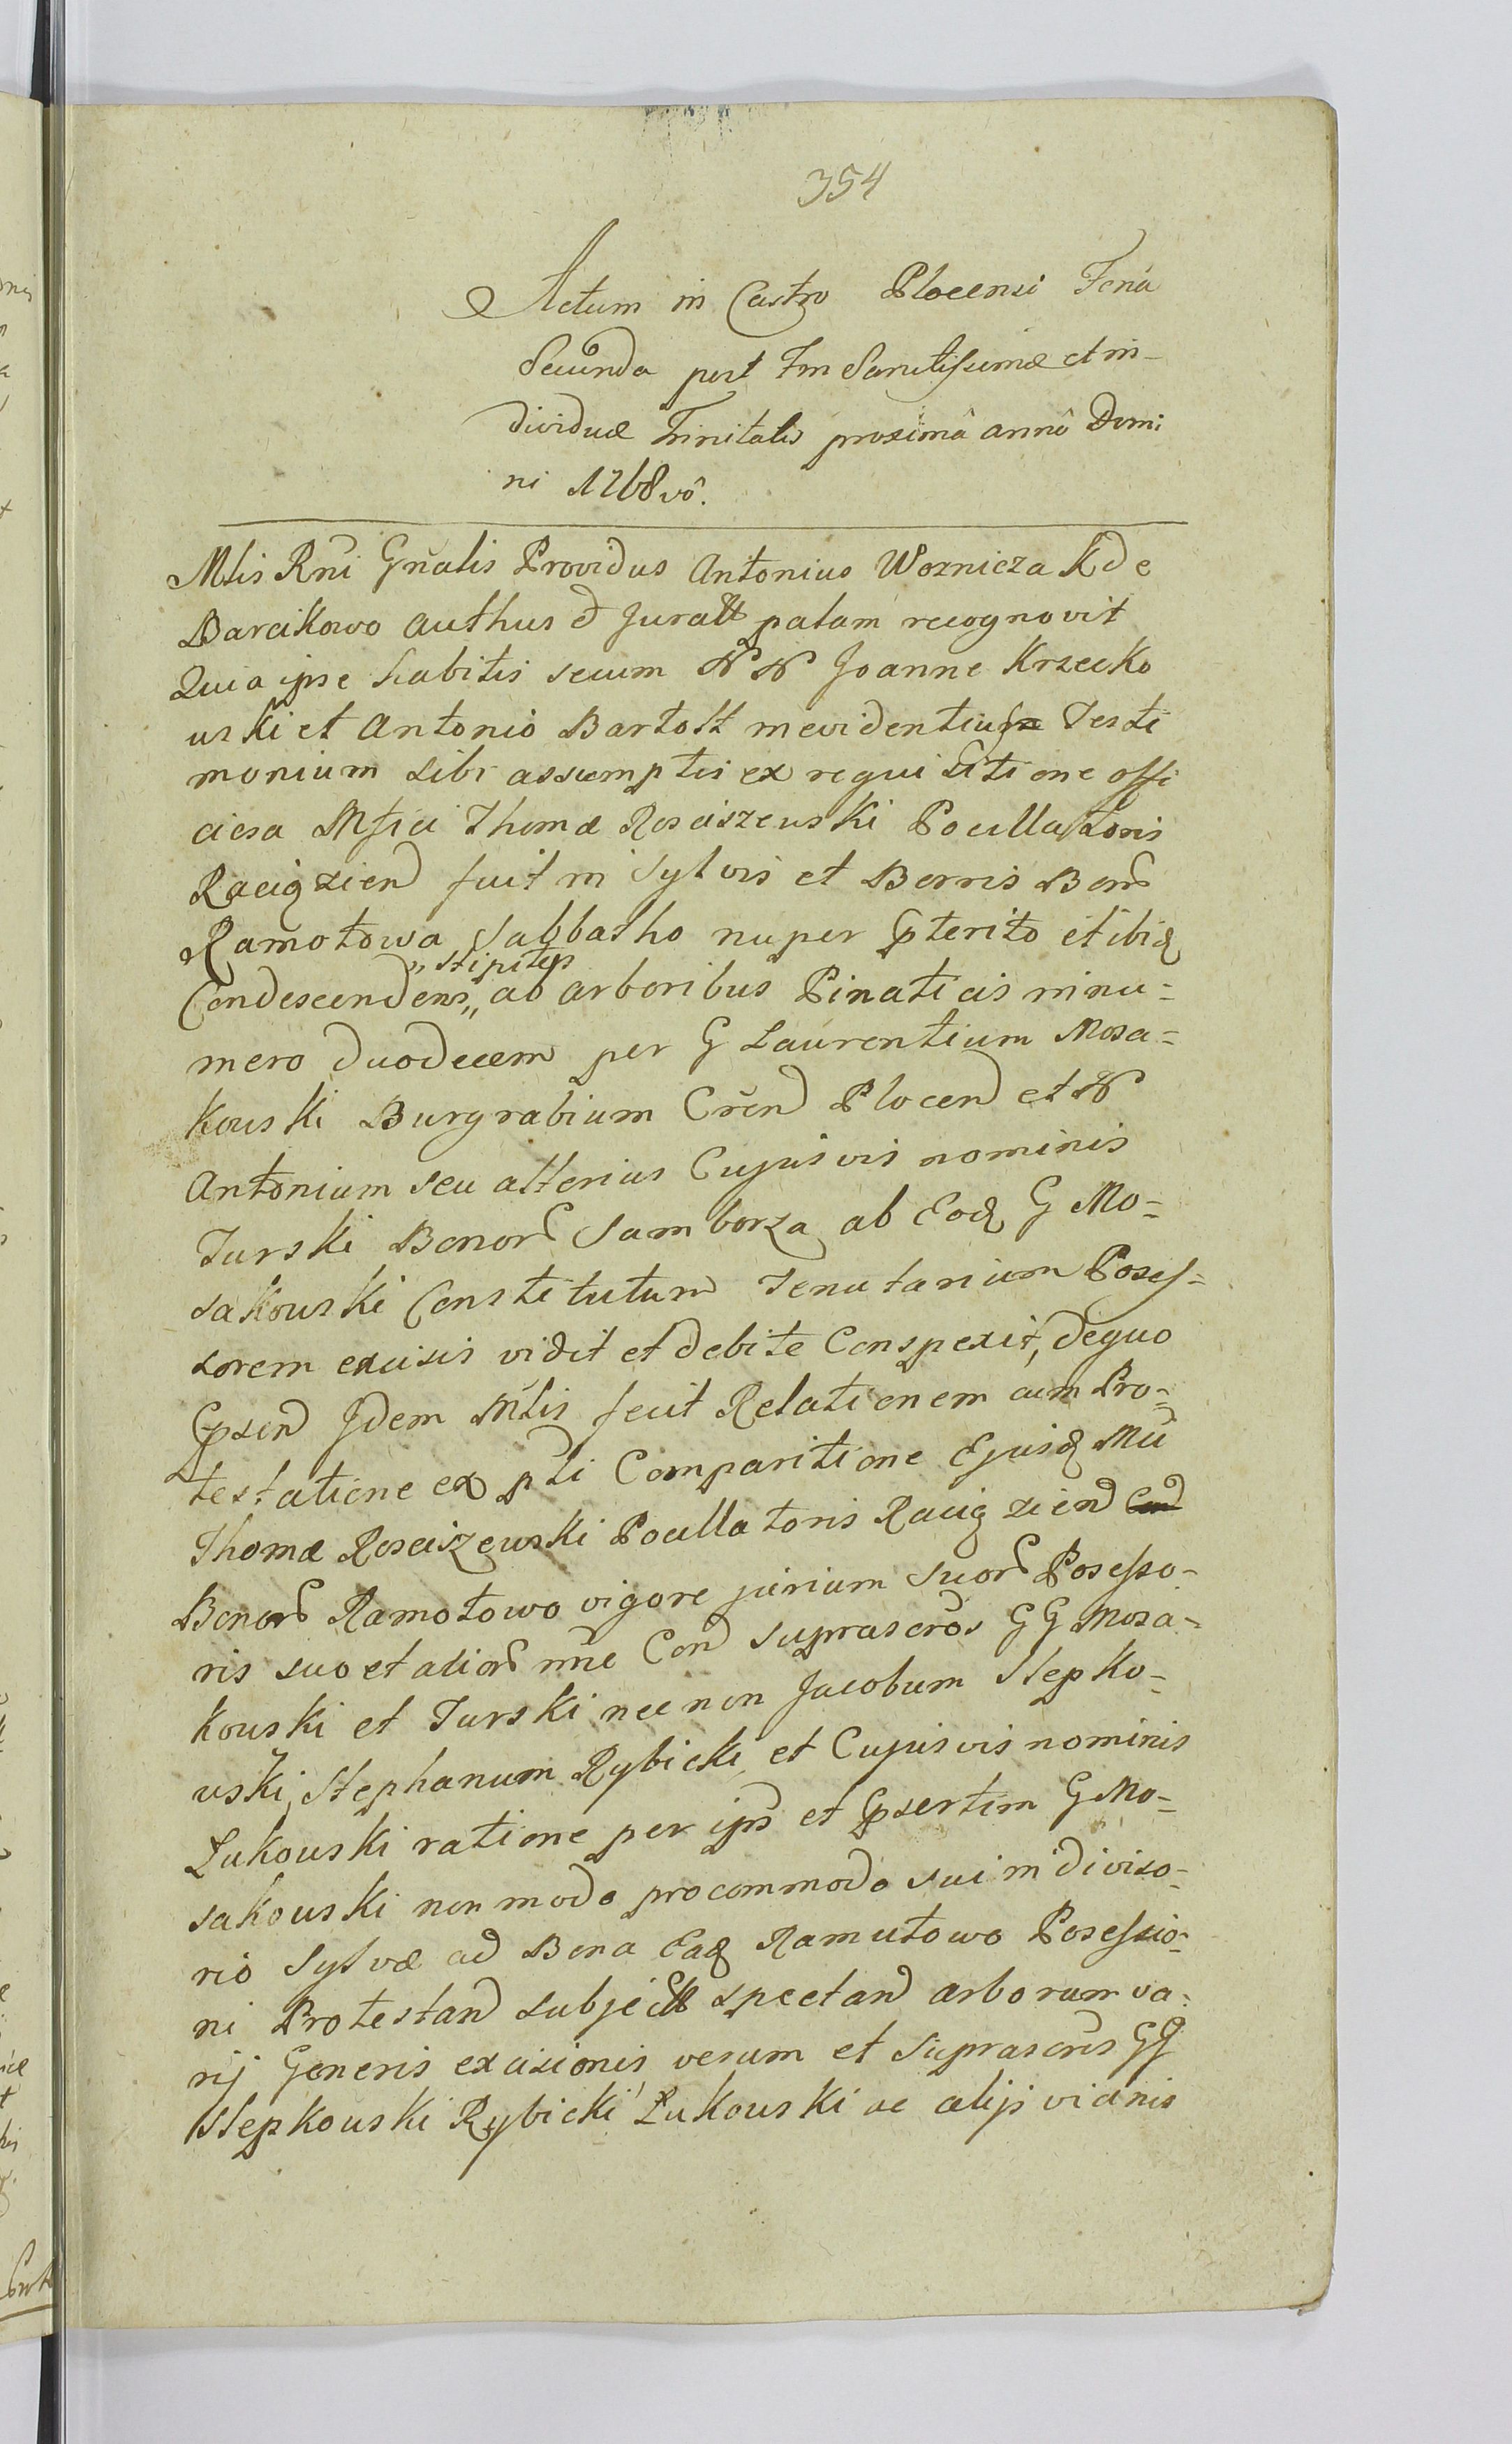 354
Actum in Castro Plocensi Feria
Secunda post Ftm Sanctissimæ et in-
dividuæ Trinitatis proximâ annô Domi
ni 1768vô.
Mlis Rni Gnalis Providus Antonius Woznicza K de
Barcikowo authus & juratt palam recognovit
Quia ipse habitis secum NN Joanne Krzecko
uski et Antonio Bartolt in evidentius Testi
monium sibi assumptis ex requisitione offi
ciosa Mfici Thomæ Rosciszeuski Pocillatoris
Raciązien fuit in Sylvis et Borris Bonor
Ramotowa Sabbatho nuper pterito et ibiq
„stipites
Condescendens„ ab arboribus Pinaticis in nu=
mero duodecem per G Laurentium Mosa=
kouski Burgrabium Cren Plocen et N
Antonium seu alterius Cujusvis nominis
Turski Bonor Samborza ab Eodq G Mo=
sakouski Constitutum Tenutarium Posses=
sorem excisis vidit et debite Conspexit, de quo
psen Jdem Mlis fecit Relationem cum Pro=
testatione ex pti Comparitione Ejusdq Mci
Thomæ Rosciszewski Pocillatoris Raciązien
Bonor Ramotowo vigore jurium suor Possesso-
ris suo et alior nne Con suprascros GG Mosa-
kouski et Turski nec non Jacobum Stepko-
uski, Stephanum Rybicki, et Cujusvis nominis
Łukouski ratione per ips et psertim G Mo=
sakouski non modo pro commodo sui in diviso-
rio Sylvæ ad Bona Eaq Ramutowo Possessio-
ni Protestan subject spectan arborum va-
rij Generis excisionis verum et suprascris GG
Stepkouski Rybicki Łukouski ac alijs vicinis